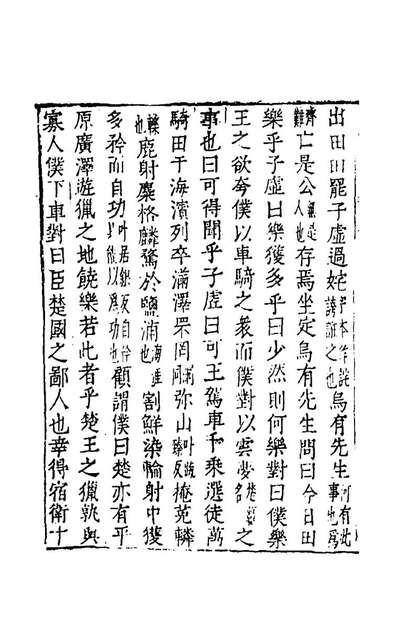 出田田罷子虛過奼誇誑之也烏有先生何有此事也為
齊難亡是公無是人也存焉坐定烏有先生問曰今日田
樂乎子虛曰樂獲多乎曰少然則何樂對曰僕樂
王之欲夸僕以車騎之衆而僕對以雲夢楚藪名之
事也曰可得聞乎子虛曰可王駕車千乘選徒萬
騎田于海濱列卒滿澤罘罔彌山叶疏臻反掩菟轔
轢也鹿射麋格麟騖於鹽浦海涯也割鮮染輪射中獲
多矜而自功叶居銀反自矜能以為功也顧謂僕曰楚亦有平
原廣澤遊獵之地饒樂若此者乎楚王之獵孰與
寡人僕下車對曰臣楚國之鄙人也幸得宿衛十